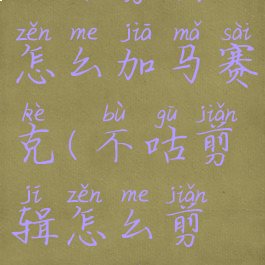 zěn me jiā mǎ sài
怎么加马赛
kè bù gū jiǎn
克(不咕剪
jí zěn me jiǎn
辑怎么剪